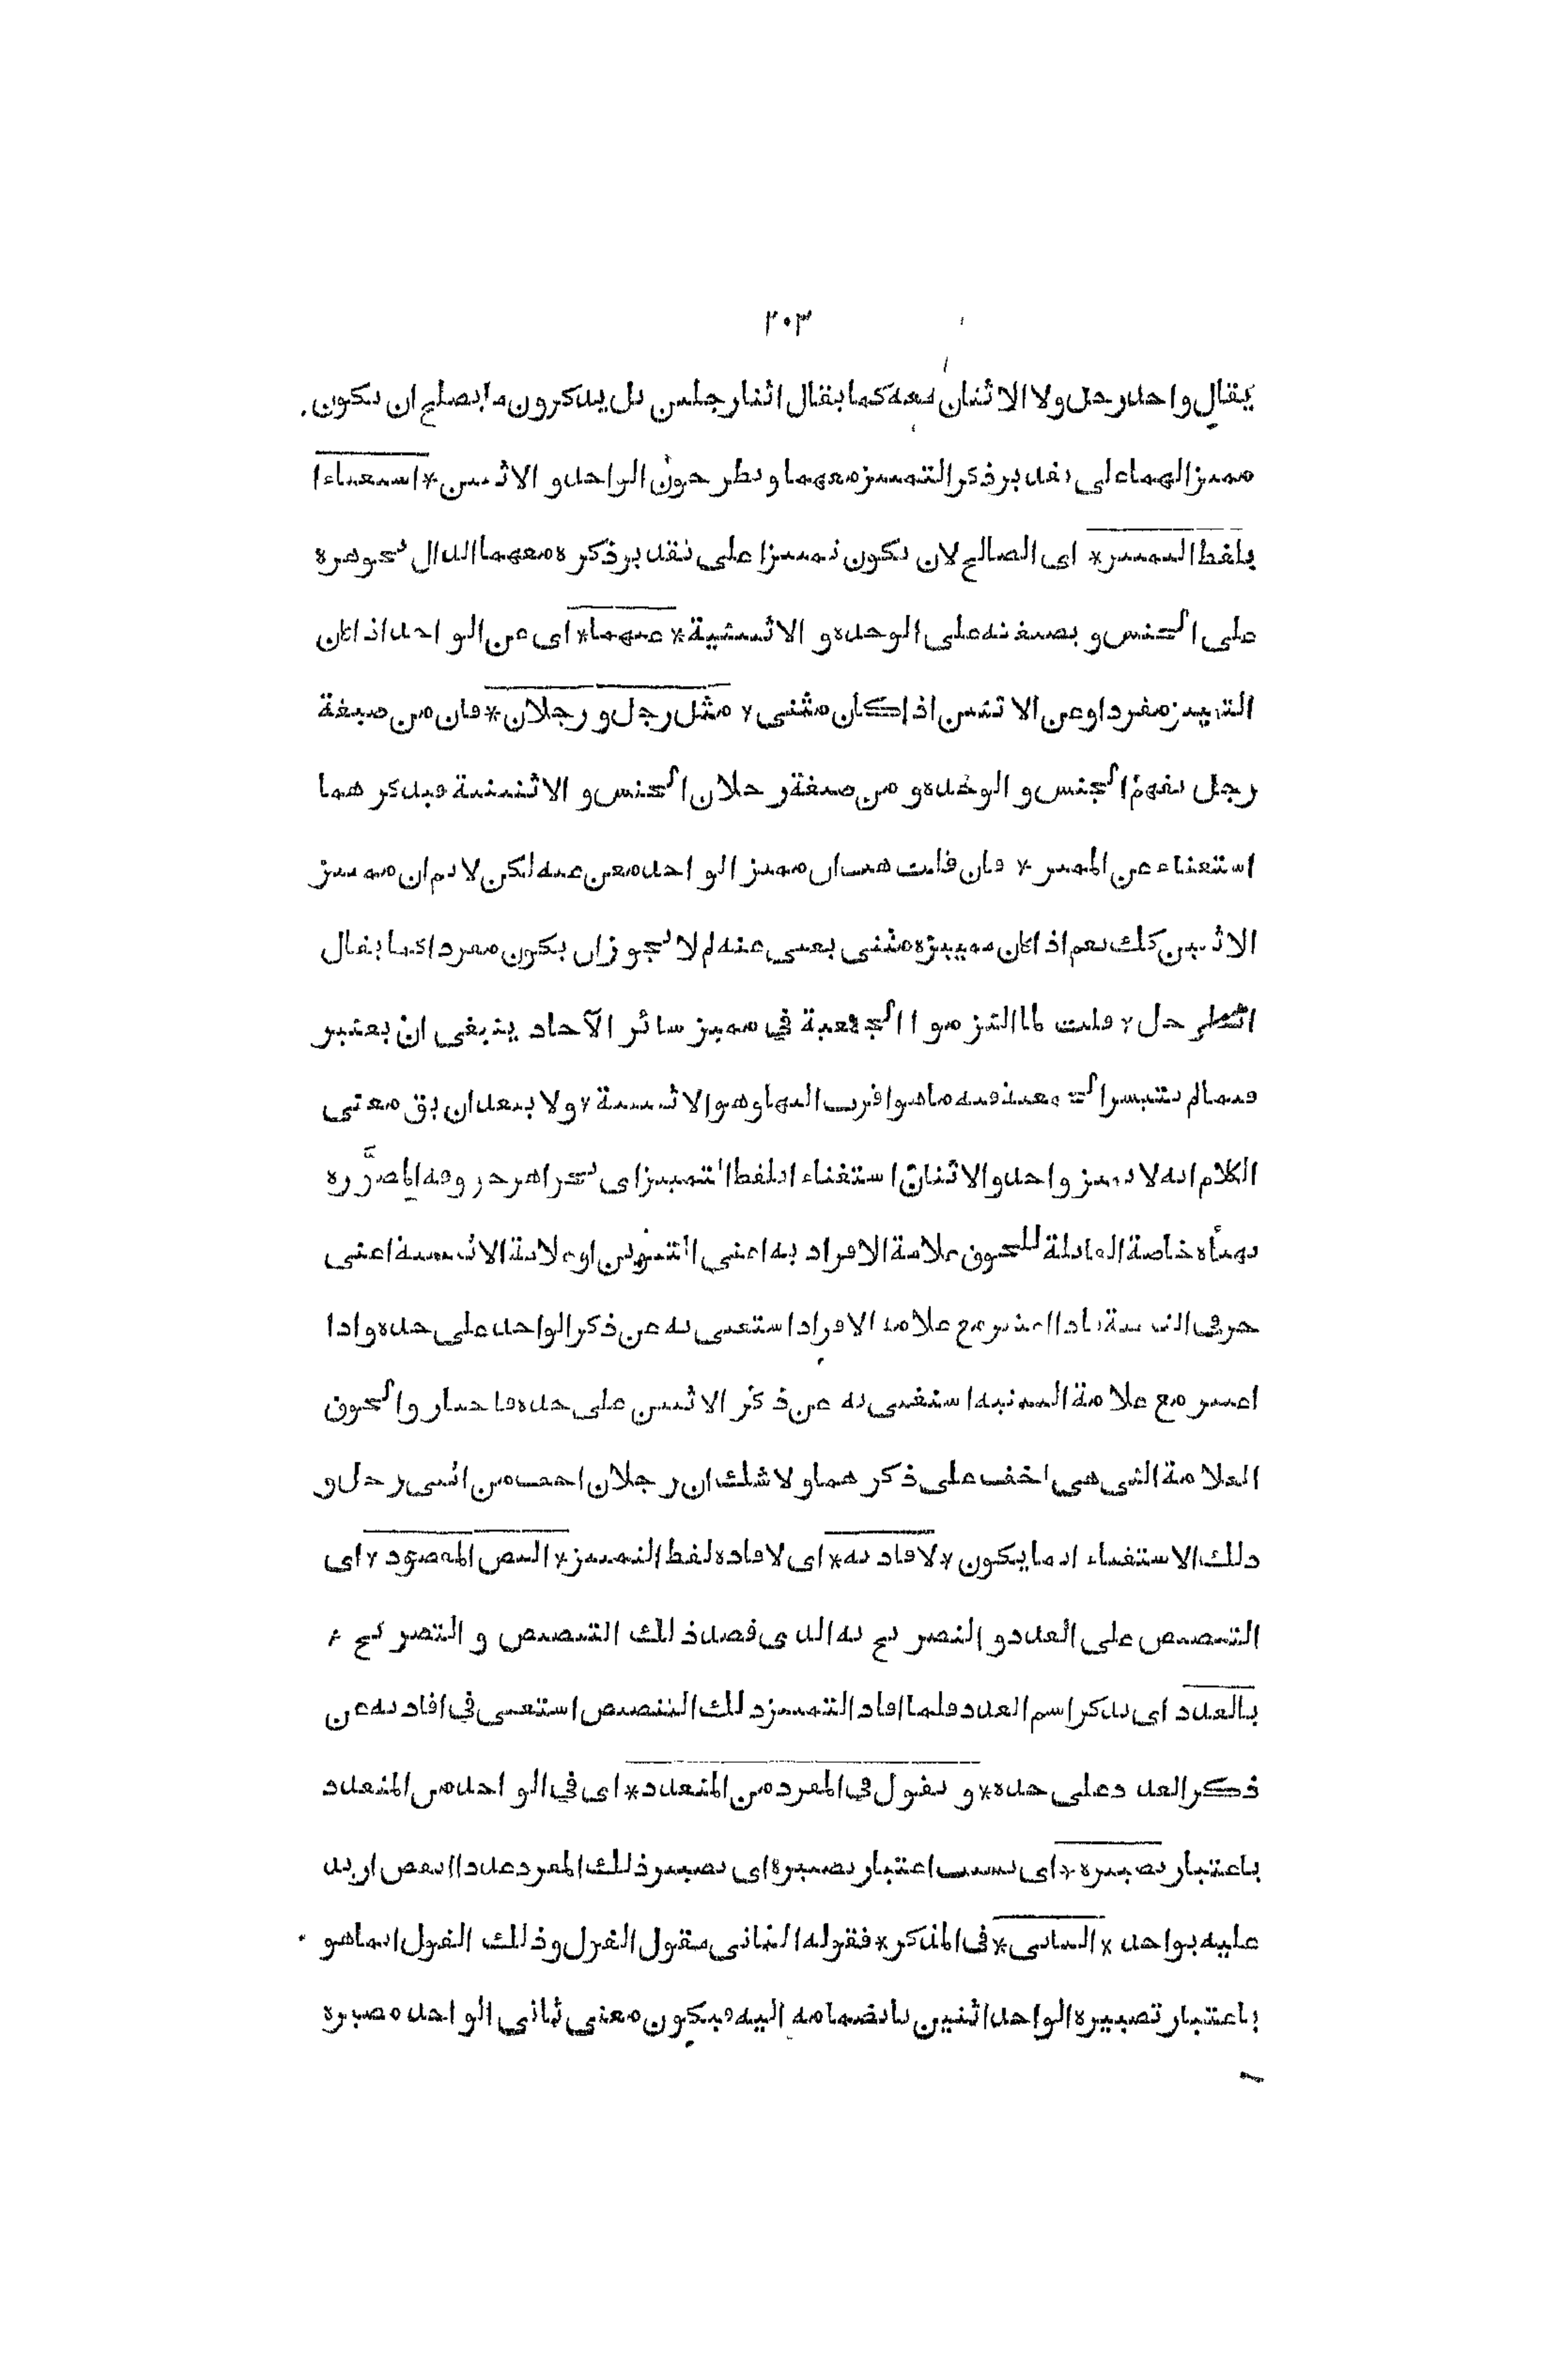 ٢٠٣
يقال واحد رجل ولا الاثنان معه كما يقال اثنا رجلين بل يذكرون ما يصلح ان يكون
مميزا لهما على تقدير ذكر التمييز معهما ويطرحون الواحد و الاثنين * استغناء
بلفظ التمييز * اى الصالح لان يكون تمييزا على تقدير ذكره معهما الدال بجوهره
على الجنس و بصيغته على الوحدة و الاثنينية * عنهما * اى عن الواحد اذا كان
التمييز مفردا وعن الاثنين اذا كان مثنى * مثل رجل و رجلان * فان من صيغة
رجل يفهم الجنس و الوحدة و من صيغة رجلان الجنس و الاثنينية فبذكرهما
استغناء عن المميز * فان قلت هب ان مميز الواحد مغن عنه لكن لا نم ان مميز
الاثنين كك نعم اذا كان مميزه مثنى يغنى عنه لم لا يجوز ان يكون مفردا كما يقال
اثنا رجل * قلت لما التزموا الجمعية في مميز سائر الآحاد ينبغى ان يعتبر
فيما لم يتيسر الجمعية فيه ما هو اقرب اليها وهو الاثنينية * ولا يبعد ان يق معنى
الكلام انه لا يميز واحد و الاثنان استغناء بلفظ التمييز اى بجواهر حروفه المصورة
بهيأة خاصة القابلة للحوق علامة الافراد به اعنى التنوين او علامة الاثنينية اعنى
حرفى التثنية فاذا اعتبر مع علامة الافراد استغنى به عن ذكر الواحد على حدة واذا
اعتبر مع علامة التثنية استغنى به عن ذكر الاثنين على حدة فاختاروا لحوق
العلامة التى هى اخف على ذكرهما ولا شك ان رجلان اخف من اثنى رجل و
ذلك الاستغناء انما يكون * لافادته * اى لافادة لفظ التمييز * النص المقصود * اى
التنصيص على العدد و التصريح به الذى قصد ذلك التنصيص و التصريح *
بالعدد اى بذكر اسم العدد فلما افاد التمييز ذلك التنصيص استغنى في افادته عن
ذكر العدد على حدة * و تقول في المفرد من المتعدد * اى في الواحد من المتعدد
باعتبار تصييره * اى بسبب اعتبار تصييره اى تصيير ذلك المفرد عددا انقص ازيد
عليه بواحد * الثانى * فى المذكر * فقوله الثانى مقول القول وذلك القول انما هو
باعتبار تصييره الواحد اثنين بانضمامه اليه فيكون معنى ثانى الواحد مصيره